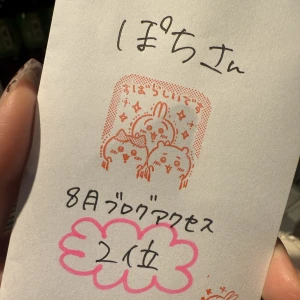 ぽちさん
すばらしいです
8月ブログアクセス
2位